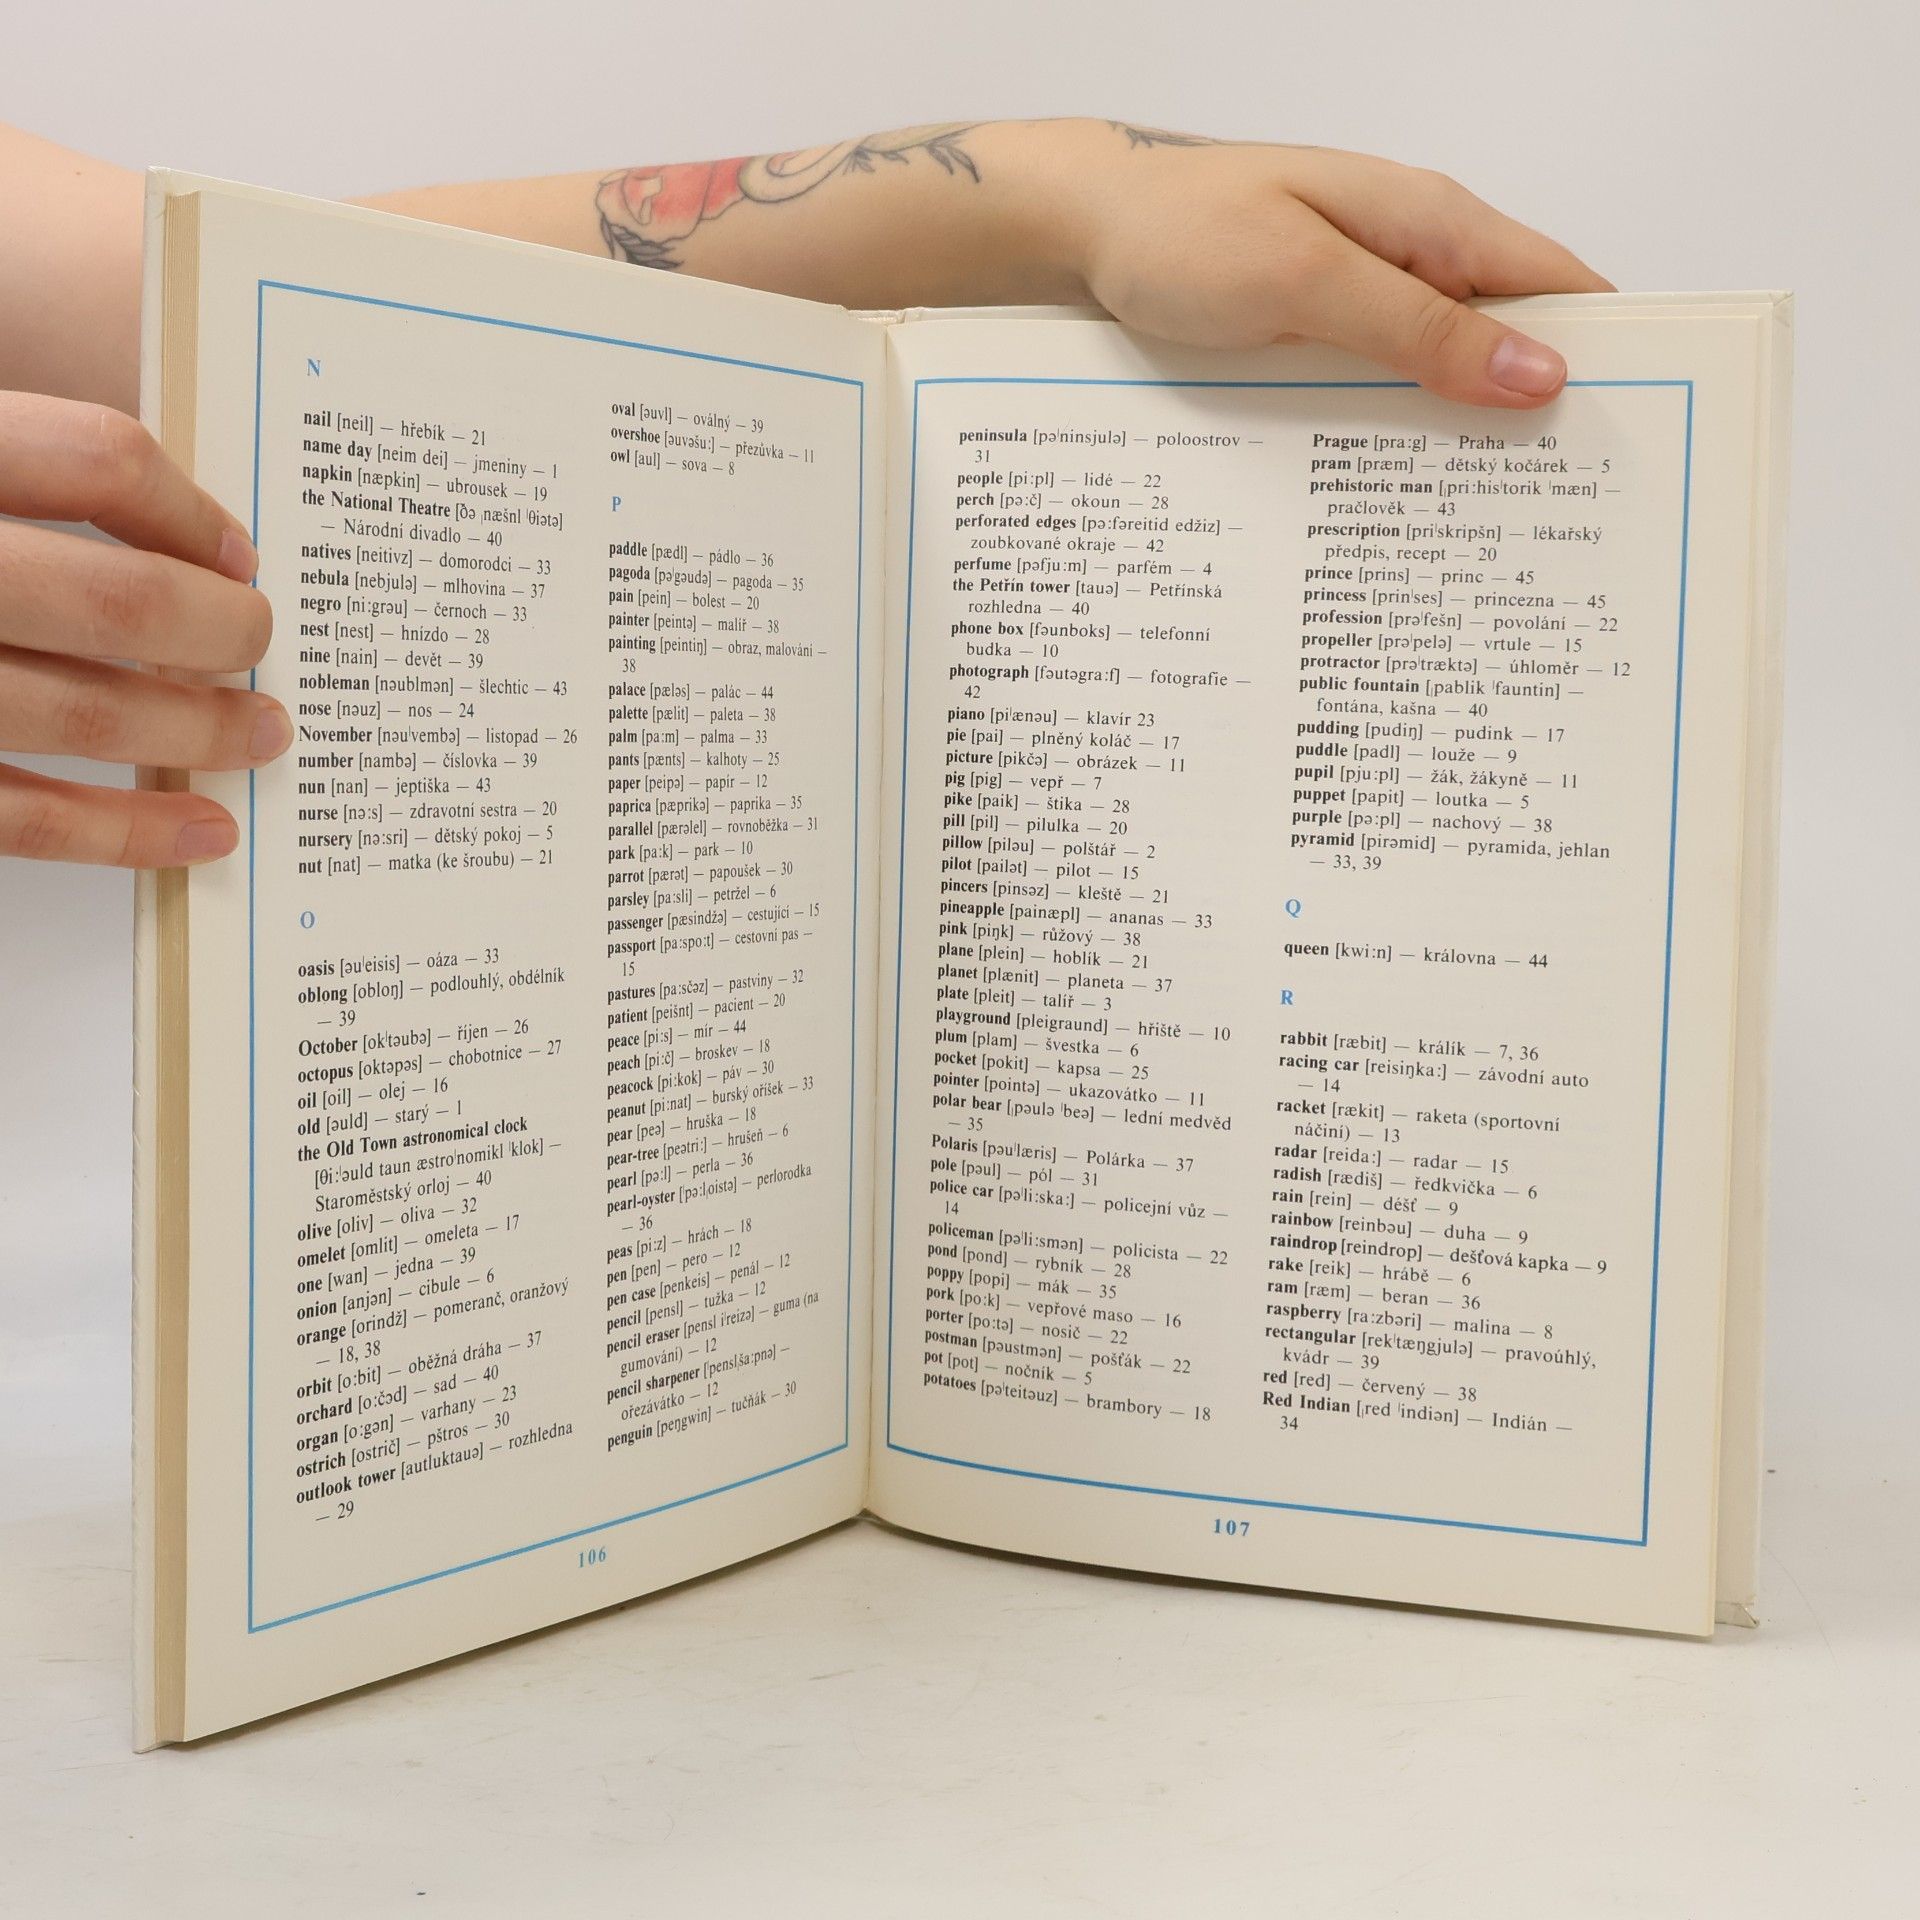 N
nail [neil] — hřebík — 21
name day [neim dei] — jmeniny — 1
napkin [næpkin] — ubrousek — 19
the National Theatre [ðə ˌnæšnl ˈθiətə]
— Národní divadlo — 40
natives [neitivz] — domorodci — 33
nebula [nebjulə] — mlhovina — 37
negro [ni:grəu] — černoch — 33
nest [nest] — hnízdo — 28
nine [nain] — devět — 39
nobleman [nəublmən] — šlechtic — 43
nose [nəuz] — nos — 24
November [nəuˈvembə] — listopad — 26
number [nambə] — číslovka — 39
nun [nan] — jeptiška — 43
nurse [nə:s] — zdravotní sestra — 20
nursery [nə:sri] — dětský pokoj — 5
nut [nat] — matka (ke šroubu) — 21
O
oasis [əuˈeisis] — oáza — 33
oblong [obloŋ] — podlouhlý, obdélník
— 39
October [okˈtəubə] — říjen — 26
octopus [oktəpəs] — chobotnice — 27
oil [oil] — olej — 16
old [əuld] — starý — 1
the Old Town astronomical clock
[θi:ˈəuld taun æstroˈnomikl ˈklok] —
Staroměstský orloj — 40
olive [oliv] — oliva — 32
omelet [omlit] — omeleta — 17
one [wan] — jedna — 39
onion [anjən] — cibule — 6
orange [orindž] — pomeranč, oranžový
— 18, 38
orbit [o:bit] — oběžná dráha — 37
orchard [o:čəd] — sad — 40
organ [o:gən] — varhany — 23
ostrich [ostrič] — pštros — 30
outlook tower [autluktauə] — rozhledna
— 29
oval [əuvl] — oválný — 39
overshoe [əuvəšu:] — přezůvka — 11
owl [aul] — sova — 8
P
paddle [pædl] — pádlo — 36
pagoda [pəˈgəudə] — pagoda — 35
pain [pein] — bolest — 20
painter [peintə] — malíř — 38
painting [peintiŋ] — obraz, malování —
38
palace [pæləs] — palác — 44
palette [pælit] — paleta — 38
palm [pa:m] — palma — 33
pants [pænts] — kalhoty — 25
paper [peipə] — papír — 12
paprica [pæprikə] — paprika — 35
parallel [pærəlel] — rovnoběžka — 31
park [pa:k] — park — 10
parrot [pærət] — papoušek — 30
parsley [pa:sli] — petržel — 6
passenger [pæsindžə] — cestující — 15
passport [pa:spo:t] — cestovní pas —
15
pastures [pa:sčəz] — pastviny — 32
patient [peišnt] — pacient — 20
peace [pi:s] — mír — 44
peach [pi:č] — broskev — 18
peacock [pi:kok] — páv — 30
peanut [pi:nat] — burský oříšek — 33
pear [peə] — hruška — 18
pear-tree [peətri:] — hrušeň — 6
pearl [pə:l] — perla — 36
pearl-oyster [ˈpə:lˌoistə] — perlorodka
— 36
peas [pi:z] — hrách — 18
pen [pen] — pero — 12
pen case [penkeis] — penál — 12
pencil [pensl] — tužka — 12
pencil eraser [pensl iˈreizə] — guma (na
gumování) — 12
pencil sharpener [ˈpenslˌša:pnə] —
ořezávátko — 12
penguin [peŋgwin] — tučňák — 30
106
peninsula [pəˈninsjulə] — poloostrov —
31
people [pi:pl] — lidé — 22
perch [pə:č] — okoun — 28
perforated edges [pə:fəreitid edžiz] —
zoubkované okraje — 42
perfume [pəfju:m] — parfém — 4
the Petřín tower [tauə] — Petřínská
rozhledna — 40
phone box [fəunboks] — telefonní
budka — 10
photograph [fəutəgra:f] — fotografie —
42
piano [piˈænəu] — klavír 23
pie [pai] — plněný koláč — 17
picture [pikčə] — obrázek — 11
pig [pig] — vepř — 7
pike [paik] — štika — 28
pill [pil] — pilulka — 20
pillow [piləu] — polštář — 2
pilot [pailət] — pilot — 15
pincers [pinsəz] — kleště — 21
pineapple [painæpl] — ananas — 33
pink [piŋk] — růžový — 38
plane [plein] — hoblík — 21
planet [plænit] — planeta — 37
plate [pleit] — talíř — 3
playground [pleigraund] — hřiště — 10
plum [plam] — švestka — 6
pocket [pokit] — kapsa — 25
pointer [pointə] — ukazovátko — 11
polar bear [ˌpəulə ˈbeə] — lední medvěd
— 35
Polaris [pəuˈlæris] — Polárka — 37
pole [pəul] — pól — 31
police car [pəˈli:ska:] — policejní vůz —
14
policeman [pəˈli:smən] — policista — 22
pond [pond] — rybník — 28
poppy [popi] — mák — 35
pork [po:k] — vepřové maso — 16
porter [po:tə] — nosič — 22
postman [pəustmən] — pošťák — 22
pot [pot] — nočník — 5
potatoes [pəˈteitəuz] — brambory — 18
Prague [pra:g] — Praha — 40
pram [præm] — dětský kočárek — 5
prehistoric man [ˌpri:hisˈtorik ˈmæn] —
pračlověk — 43
prescription [priˈskripšn] — lékařský
předpis, recept — 20
prince [prins] — princ — 45
princess [prinˈses] — princezna — 45
profession [prəˈfešn] — povolání — 22
propeller [prəˈpelə] — vrtule — 15
protractor [prəˈtræktə] — úhloměr — 12
public fountain [ˌpablik ˈfauntin] —
fontána, kašna — 40
pudding [pudiŋ] — pudink — 17
puddle [padl] — louže — 9
pupil [pju:pl] — žák, žákyně — 11
puppet [papit] — loutka — 5
purple [pə:pl] — nachový — 38
pyramid [pirəmid] — pyramida, jehlan
— 33, 39
Q
queen [kwi:n] — královna — 44
R
rabbit [ræbit] — králík — 7, 36
racing car [reisiŋka:] — závodní auto
— 14
racket [rækit] — raketa (sportovní
náčiní) — 13
radar [reida:] — radar — 15
radish [rædiš] — ředkvička — 6
rain [rein] — déšť — 9
rainbow [reinbəu] — duha — 9
raindrop [reindrop] — dešťová kapka — 9
rake [reik] — hrábě — 6
ram [ræm] — beran — 36
raspberry [ra:zbəri] — malina — 8
rectangular [rekˈtæŋgjulə] — pravoúhlý,
kvádr — 39
red [red] — červený — 38
Red Indian [ˌred ˈindiən] — Indián —
34
107